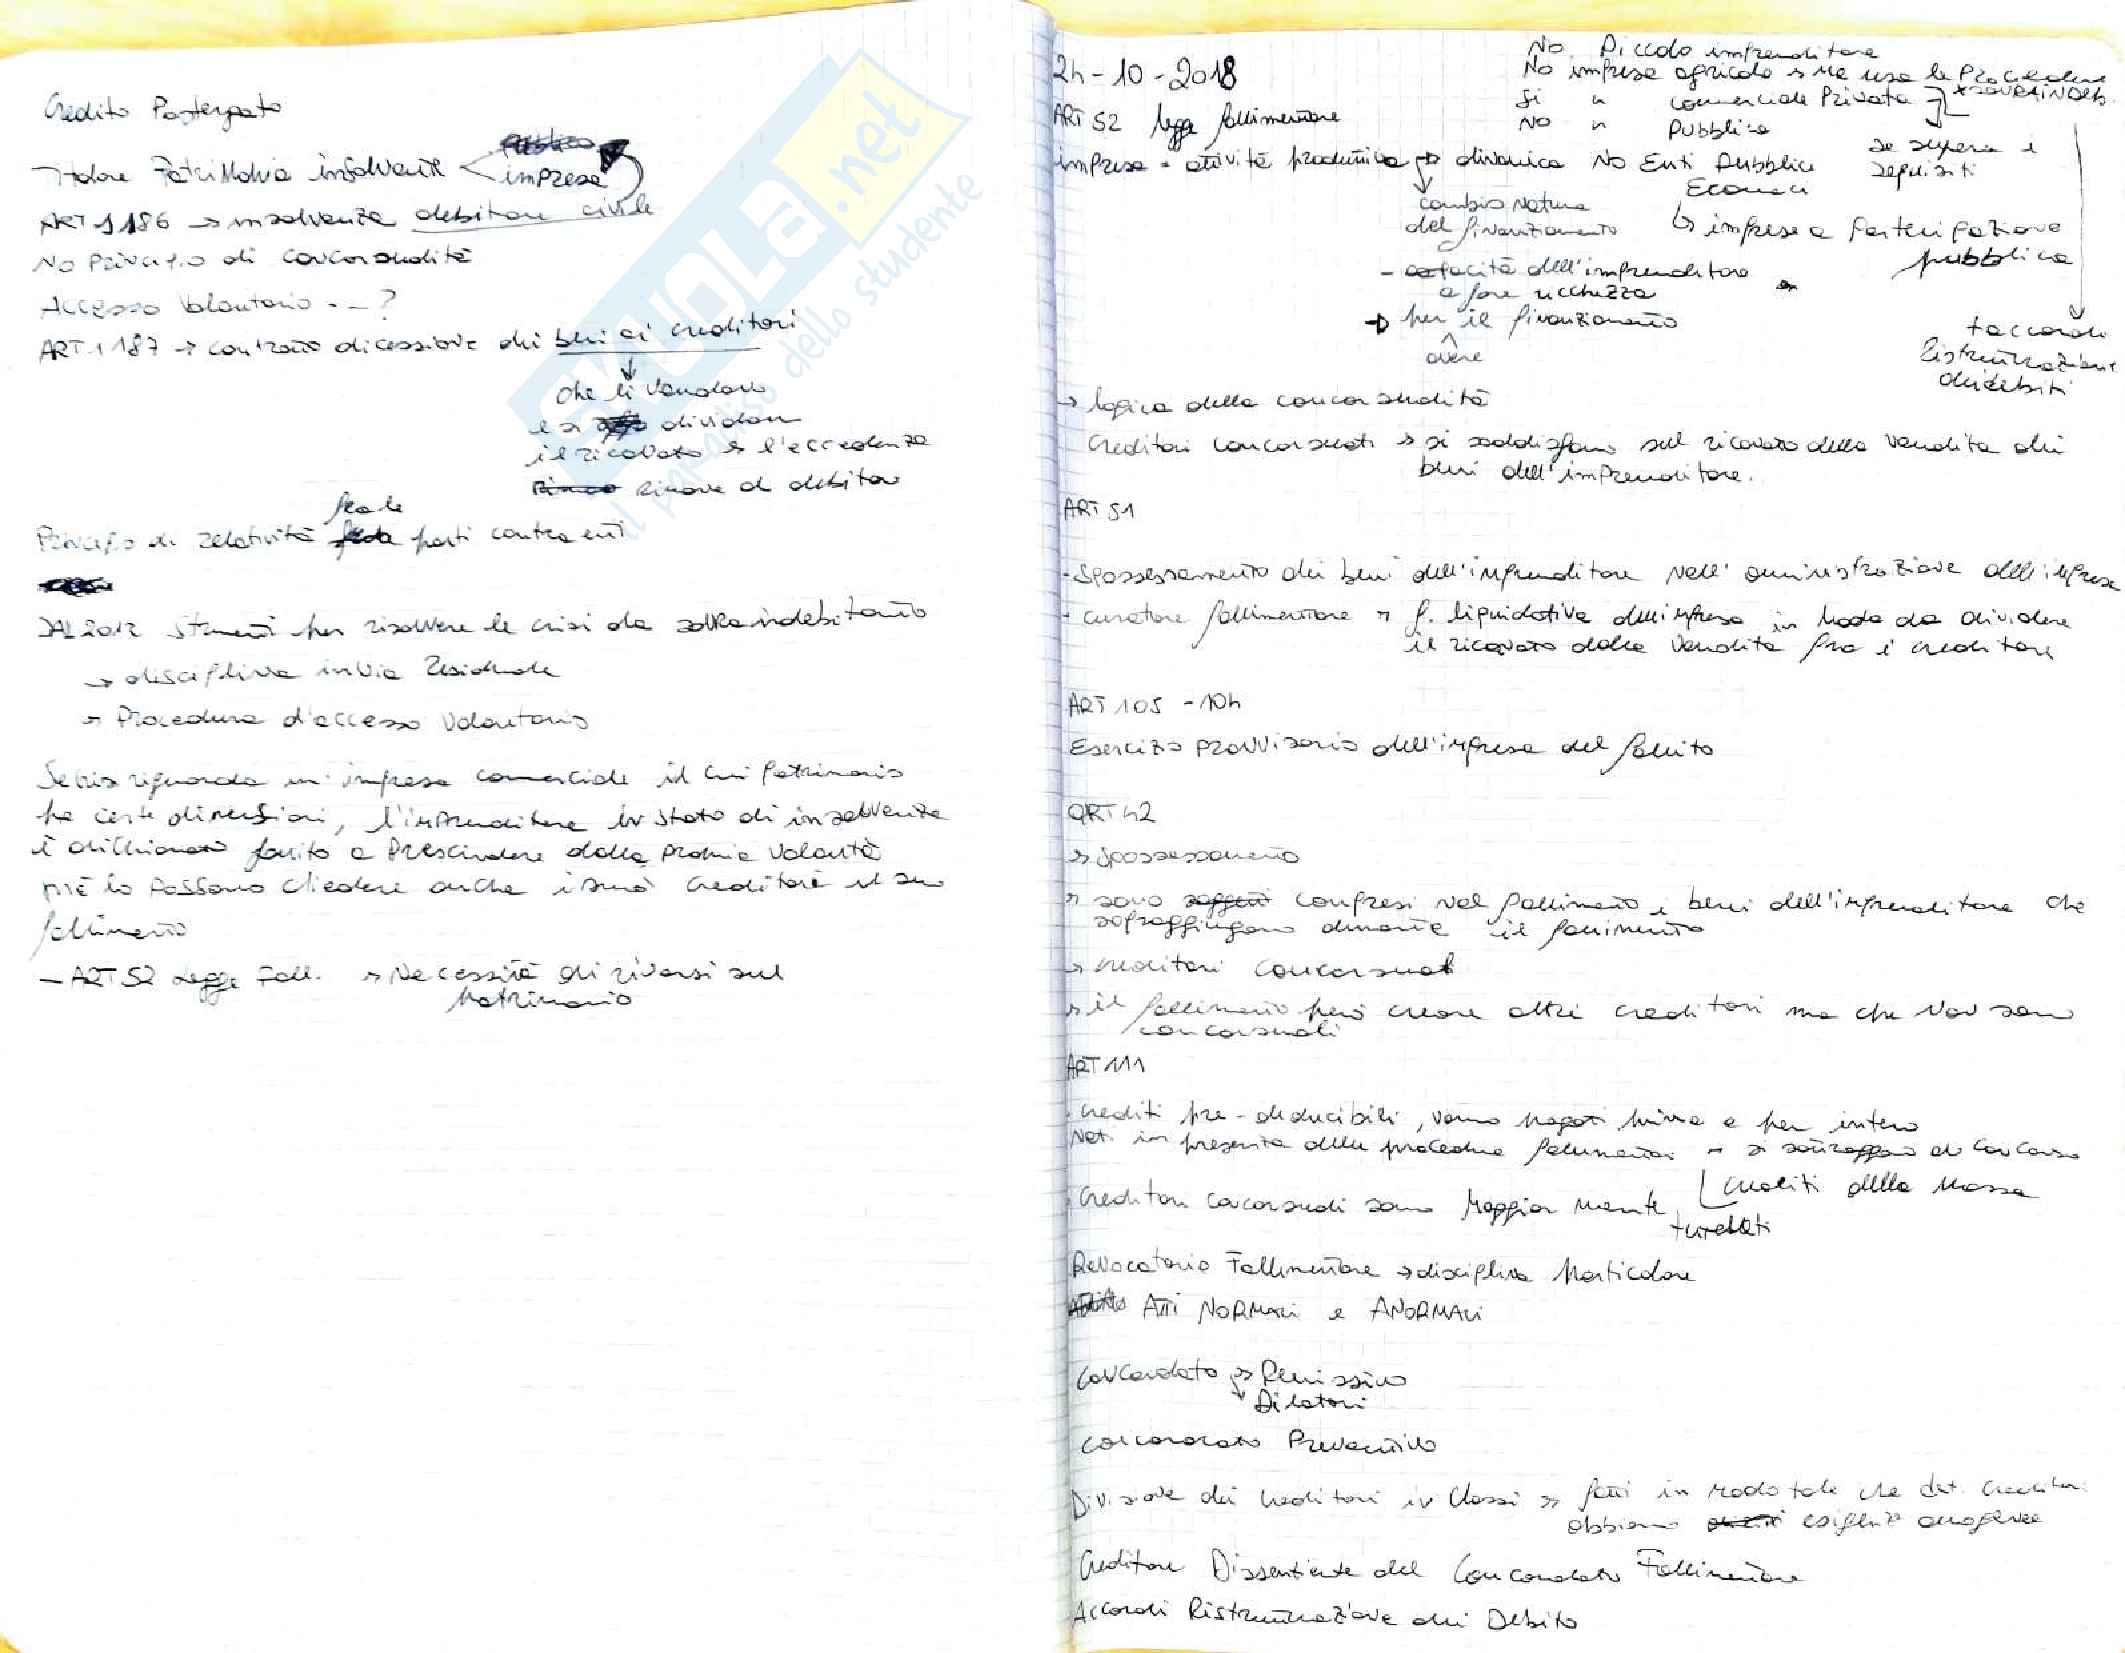 Credito Postergato
Titolare Patrimonio insolvente
impresa
ART 1186 → insolvenza debitore civile
No Principio di concorsualità
Accesso Volontario - - ?
ART 1187 → contratto di cessione dei beni ai creditori
che li vendono
e si dividono
il ricavato e l'eccedenza
rimane al debitore
fra le
Principio di relatività parti contraenti
DAL 2012 strumenti per risolvere le crisi da sovraindebitamento
→ disciplina in via Residuale
→ Procedura d'accesso volontario
Se crisi riguarda un' impresa commerciale il cui patrimonio
ha certe dimensioni, l'imprenditore in stato di insolvenza
è dichiarato fallito a prescindere dalla propria volontà
lo possono chiedere anche i suoi creditori il suo
fallimento
- ART 52 Legge Fall. → Necessità di rivarsi sul
patrimonio
24-10-2018
No Piccolo imprenditore
No impresa agricola → ma usa le Procedure
SOVRAINDEB.
Si " commerciale Privata
No " Pubblica
se supera i
requisiti
ART 52 legge fallimentare
impresa = attività produttiva → dinamica No Enti Pubblici
Economici
→ imprese a partecipazione
pubblica
cambia natura
del finanziamento
- capacità dell'imprenditore
a fare ricchezza
→ per il finanziamento
avere
+ accordi
Ristrutturazione
dei debiti
→ logica della concorsualità
Creditori concorsuali → si soddisfano sul ricavato della vendita dei
beni dell'imprenditore.
ART 51
- Spossessamento dei beni dell'imprenditore nell'amministrazione dell'impresa
- curatore fallimentare → f. liquidativa dell'impresa in modo da dividere
il ricavato dalla vendita fra i creditori
ART 105 - 104
Esercizio provvisorio dell'impresa del fallito
ART 42
→ spossessamento
→ sono soggetti compresi nel fallimento i beni dell'imprenditore che
sopraggiungono durante il fallimento
→ creditori concorsuali
→ il fallimento però creare altri creditori ma che non sono
concorsuali
ART 111
- Crediti pre-deducibili, vanno pagati prima e per intero
Nati in presenza delle procedure fallimentari → si sottraggono al concorso
crediti della massa
- Creditori concorsuali sono maggior mente
tutelati
Revocatoria Fallimentare → disciplina particolare
Atti NORMALI e ANORMALI
Concordato → Remissivo
→ Dilatori
concordato Preventivo
Divisione dei Creditori in Classi → fatti in modo tale che det. creditori
abbiano esigenze omogenee
Creditore Dissentiente del Concordato Fallimentare
Accordi Ristrutturazione dei Debito
SKUOLA.net
il paradiso dello studente